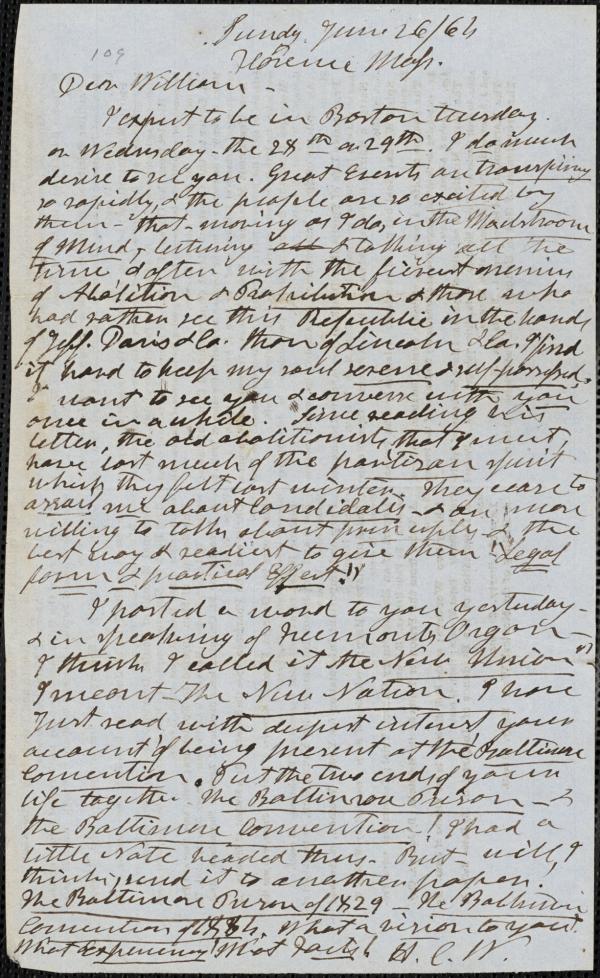 Sundy. June 26/64
109
Florence Mass.
Dear William -
I expect to be in Boston tuesday.
or Wednesday - the 28th or 29th. I do much
desire to see you. Great Events are transpiring
so rapidly, & the people are so excited by
them - that - moving as I do, in the Maelstroom
of Mind, lecturing & talking all the
time & often with the fiercest enemies
of Abolition & Prohibition & those who
had rather see this Republic in the hands
of Jeff. Davis & Co. than of Lincoln & Co. I find
it hard to keep my soul serene & self-possessed.
I want to see you & converse with you
once in a while. Since reading his
letter, the old abolitionists that I meet,
have lost much of the partizan spirit
which they felt last winter. They cease to
assail me about Candidates - & are more
willing to talk about principles & the
best way & readiest to give them Legal
form & practical Effect!!
I posted a word to you yesterday -
& in speaking of Fremonts Organ -
I think I called it the New Union"
I meant - The New Nation. I have
Just read with deepest interest your
account of being present at the Baltimore
Convention. Put the two ends of your
life together - The Baltimore Prison - &
the Baltimore Convention! I had a
little Note headed thus - But - will, I
think, send it to another paper.
The Baltimore Prison of 1829 - The Baltimore
Convention of 1864. What a vision to you!
What Experience! What facts! H. C. W.